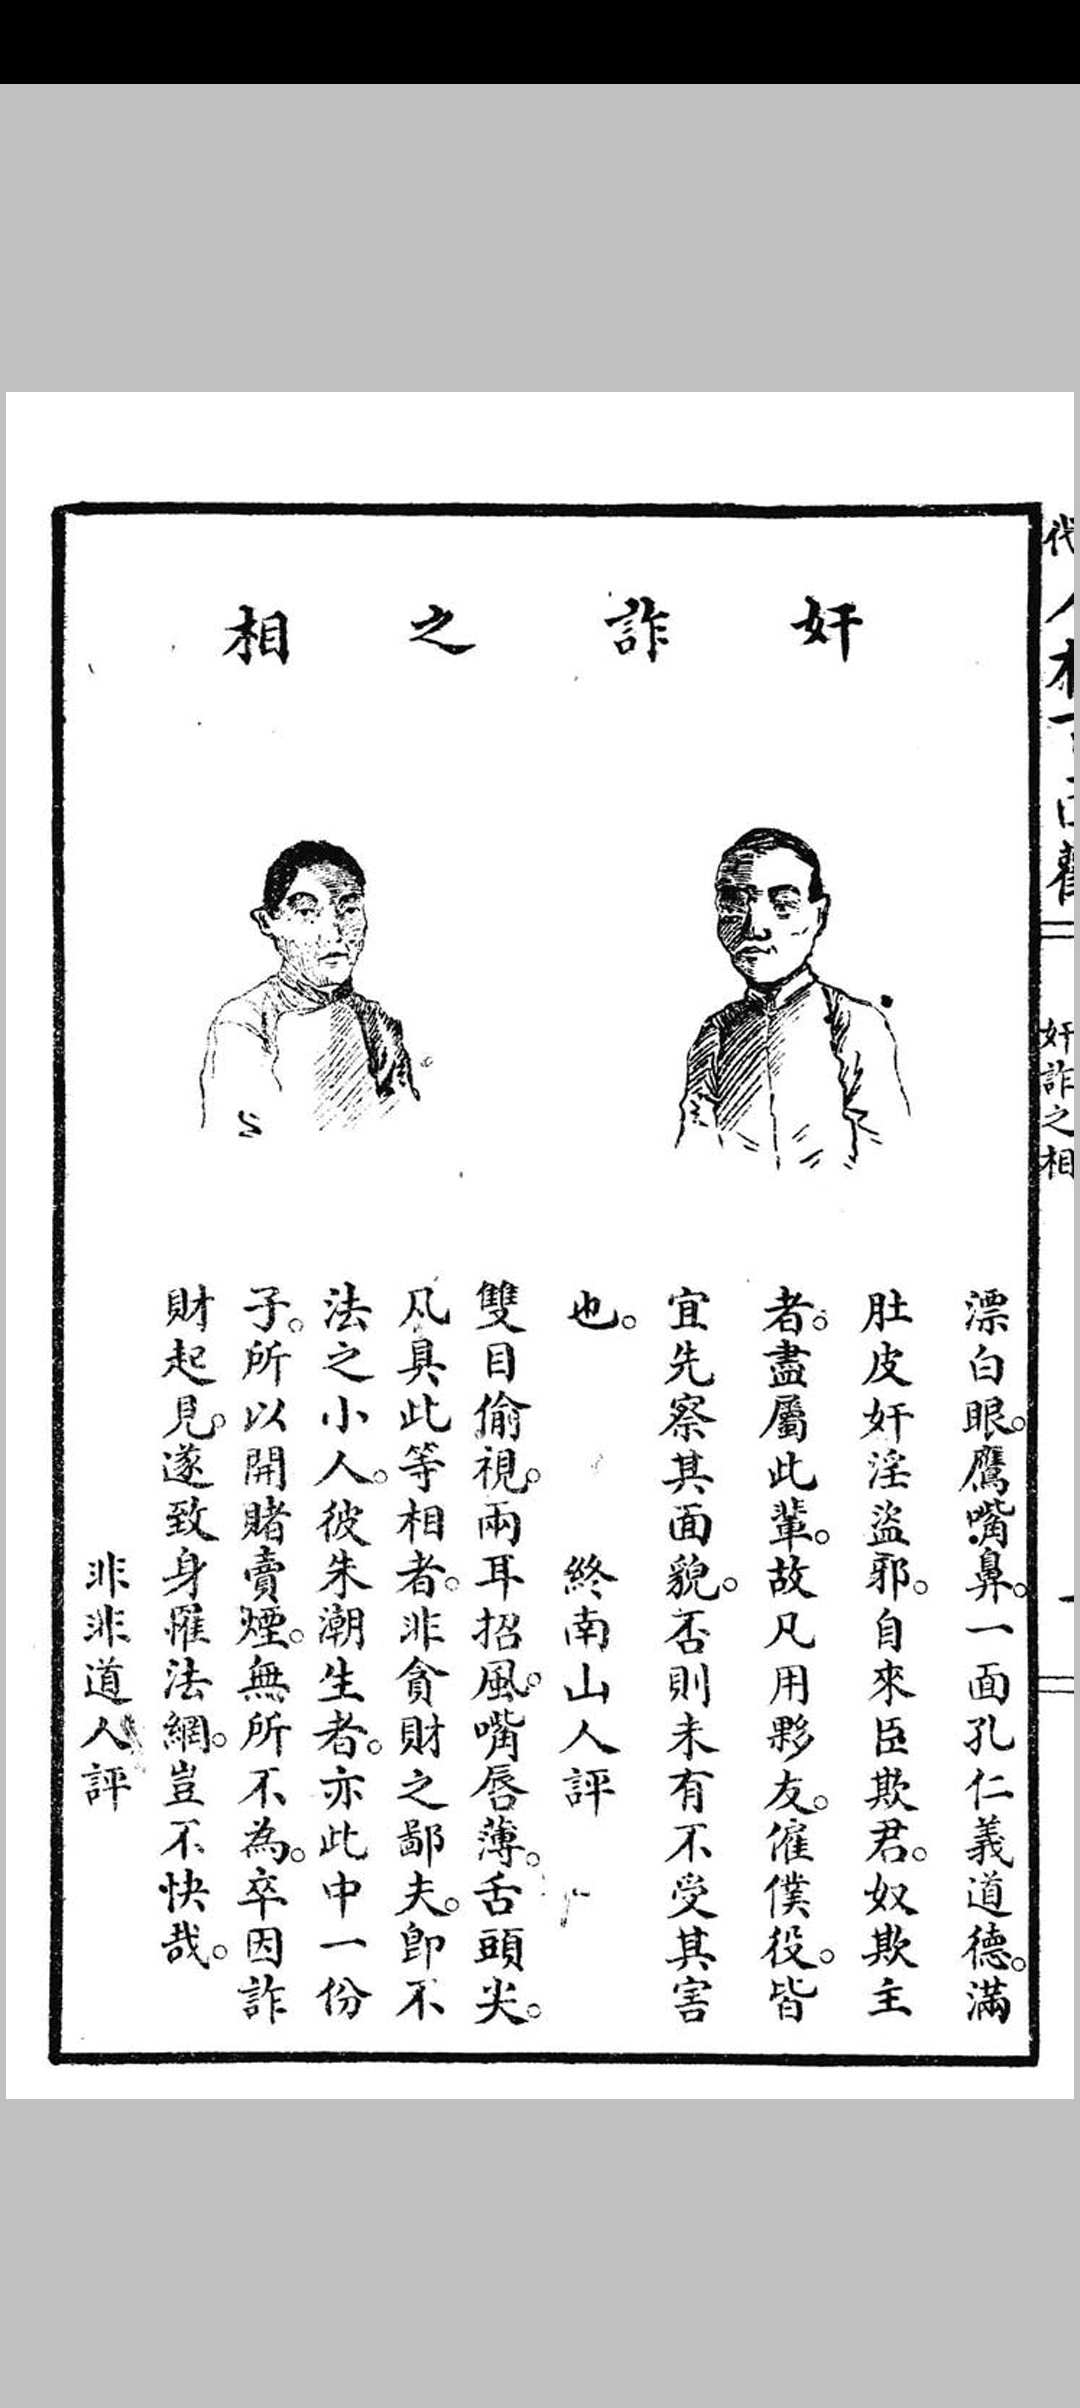 奸詐之相
漂白眼。鷹嘴鼻。一面孔仁義道德。滿
肚皮奸淫盜邪。自來臣欺君。奴欺主
者。盡屬此輩。故凡用夥友。僱僕役。皆
宜先察其面貌。否則未有不受其害
也。
終南山人評
雙目偷視。兩耳招風。嘴唇薄。舌頭尖。
凡具此等相者。非貪財之鄙夫。卽不
法之小人。彼朱潮生者。亦此中一份
子。所以開賭賣煙。無所不為。卒因詐
財起見。遂致身罹法網。豈不快哉。
非非道人評
奸詐之相